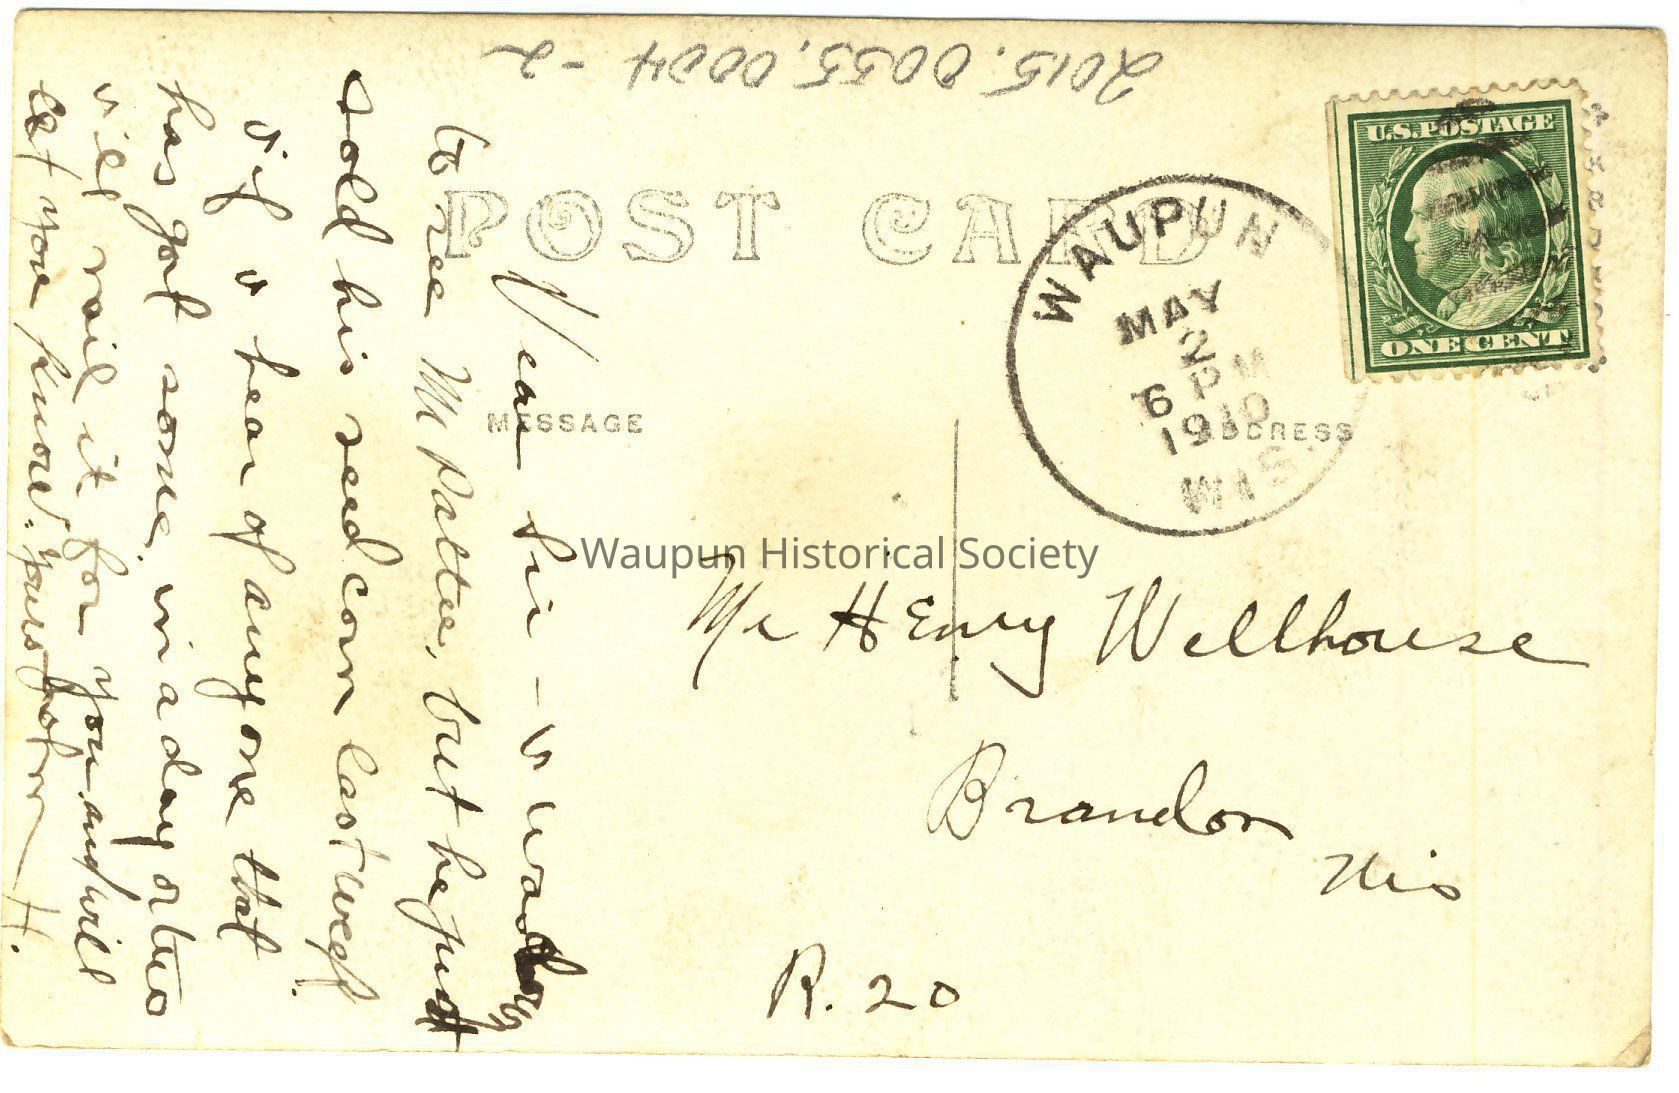 2015.0055.0004-2
POST CARD
U.S. POSTAGE
ONE CENT
WAUPUN
MAY
2
6 PM
1910
WIS.
MESSAGE
ADDRESS
Waupun Historical Society
Dear Sir -
to see M Patte, but he just
sold his seed corn last week.
if hear of any one that
has got some, in a day or two
will mail it for you and will
let you know. Yours John H.
Mr Henry Wellhouse
Brandon
Wis
R. 20